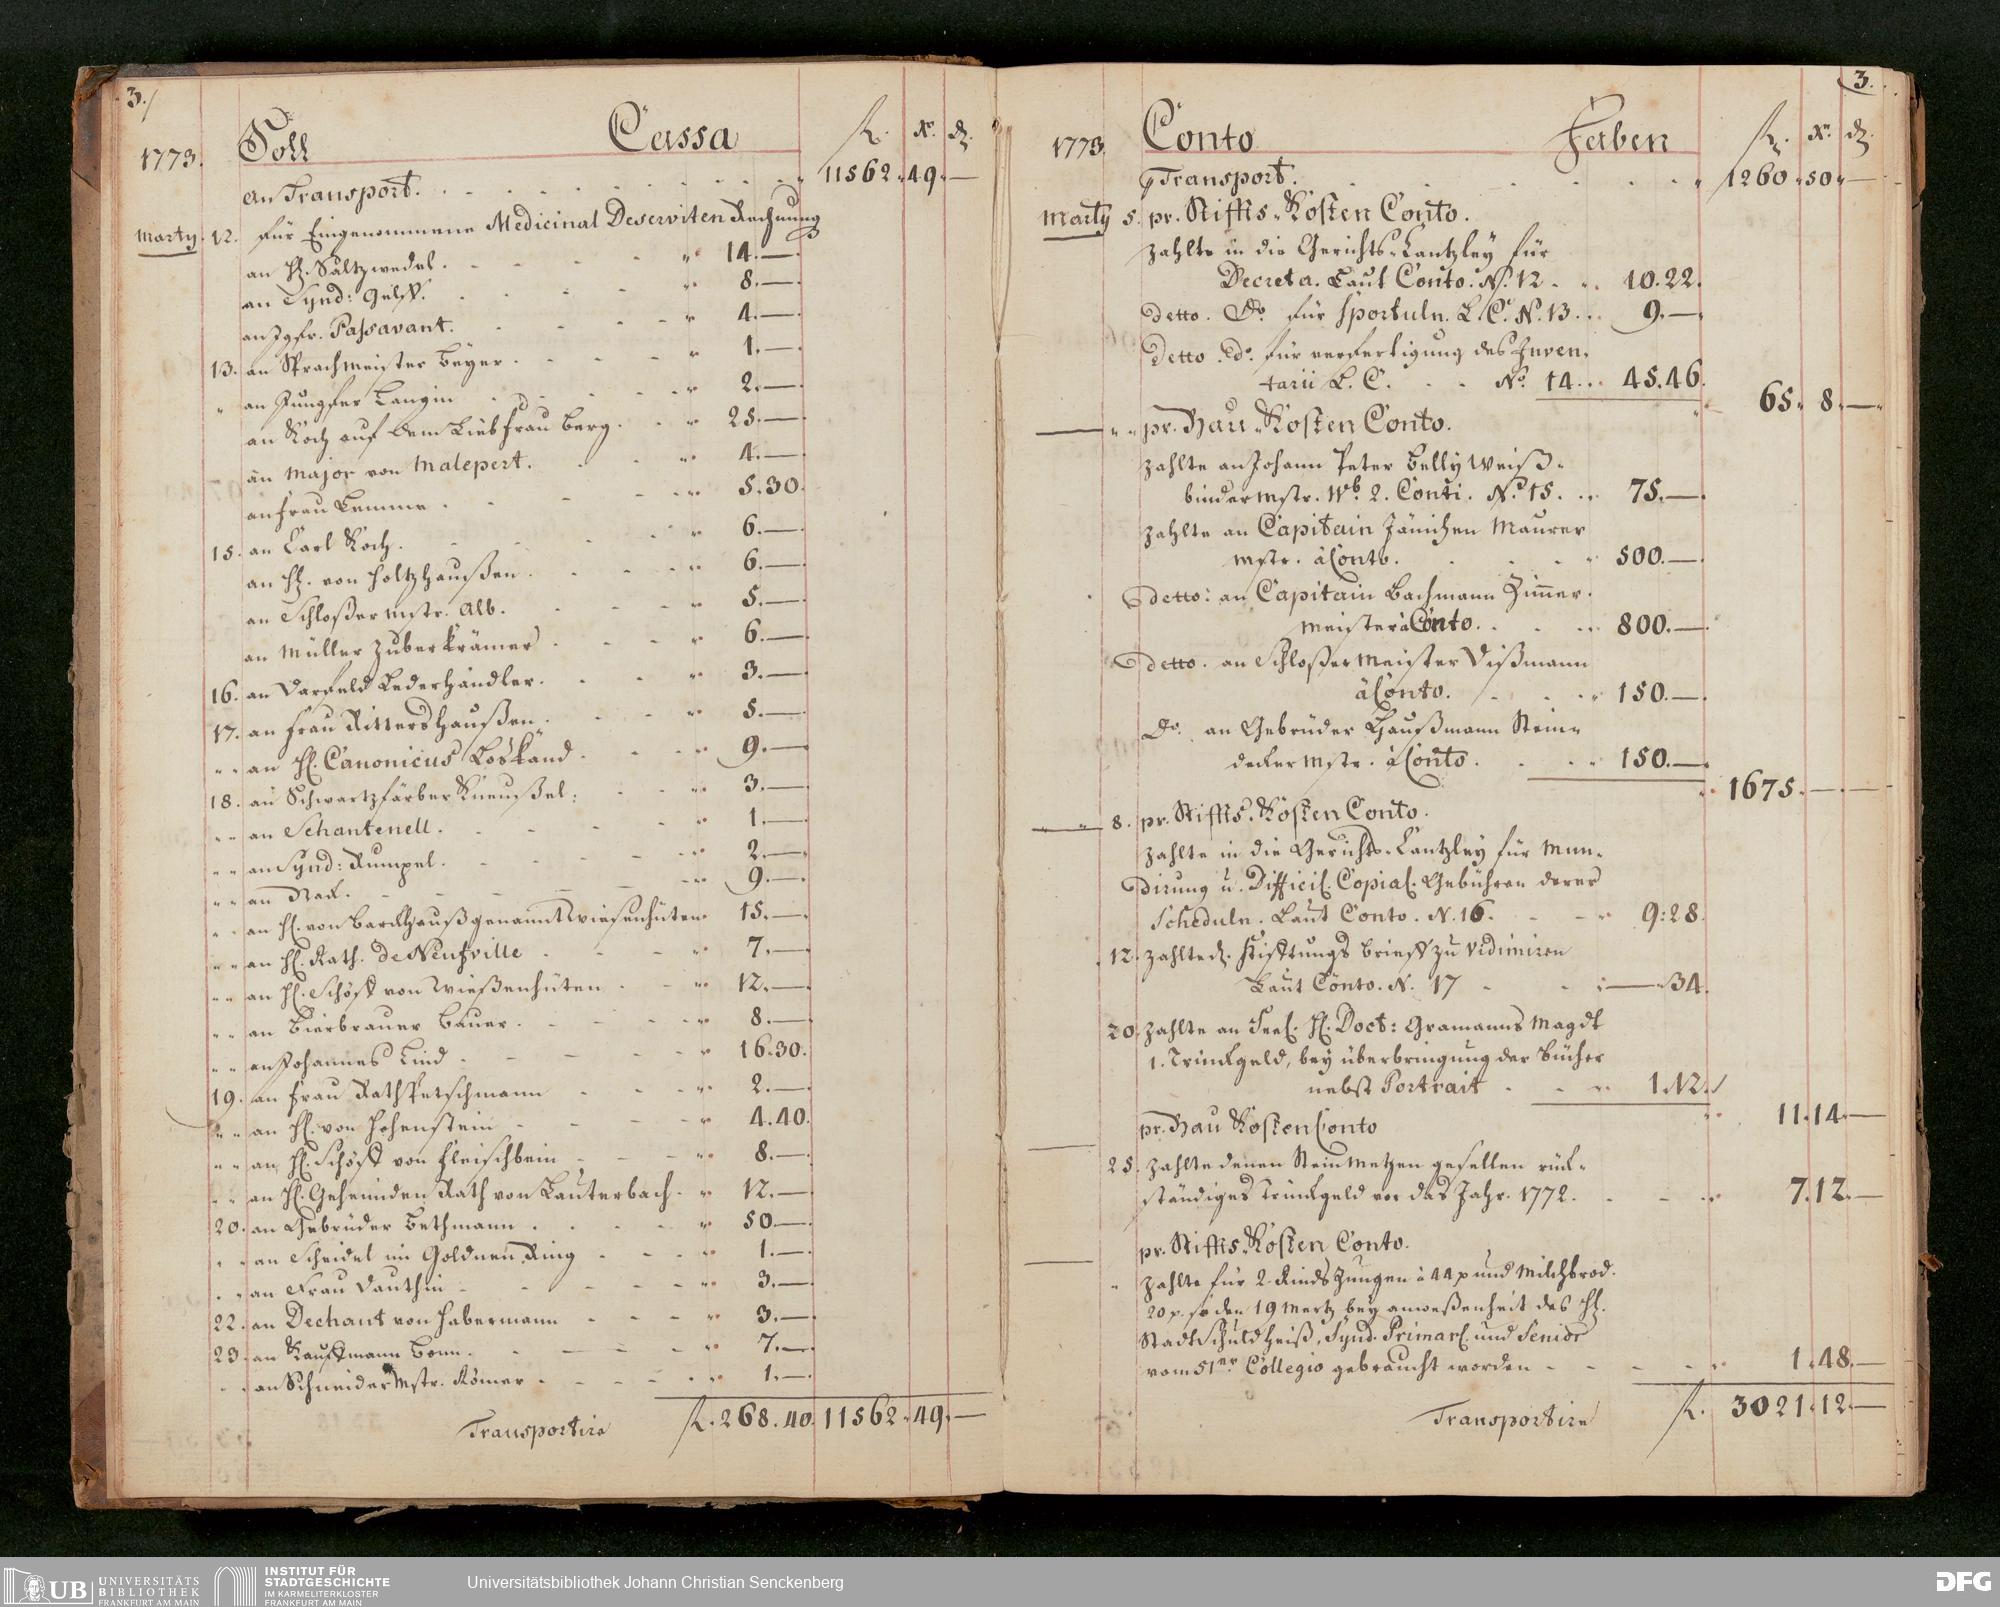 3.
1773. Soll Cassa fl. xr. d.
An Transport. 11562. 49. —
Marty. 12. für Eingenommene Medicinal Deserviten Rechnung
an H. Saltzwedel. 14. —
an Synd: 8. —
an Jgfr. Passavant. 4. —
13. an Sprachmeister Beyer. 1. —
an Jungfer Langin 2. —
an Koch auf dem Liebfrau Berg. 25. —
an Major von Malepert. 4. —
an Frau Lemme 5. 30.
15. an Carl Koch. 6. —
an H. von Holtzhaußen. 6. —
an Schloßer mstr. Alb. 5. —
an Müller Zuberkrämer 6. —
16. an Darfeld Lederhändler. 3. —
17. an Frau Rittershaußen. 5. —
an H. Canonicus Loskand. 9. —
18. an Schwartzfärber Kneußel: 3. —
an Schantenell. 1. —
an Synd: Rumpel. 2. —
an 9. —
an H. von Barckhauß genannt Wiesenhüten 15. —
an H. Rath. de Neufville 7. —
an H. Schöff von Wießenhüten 12. —
an Bierbrauer Bauer. 8. —
an Johannes Lind 16. 30.
19. an Frau Rath Petschmann 2. —
an H. von Hohenstein 4. 40.
an H. Schöff von Fleischbein 8. —
an H. Geheimden Rath von Lauterbach. 12. —
20. an Gebrüder Bethmann. 50 —
an Scheidel im Goldnen Ring 1. —
an Frau Dauthin 3. —
22. an Dechant von Habermann 3. —
23. an Kauffmann Bonn. 7. —
an Schneider Mstr. Römer 1. —
Transportire fl. 268. 40. 11562. 49. —
3.
1773. Conto Haben fl. xr. d.
Transport. 1260. 50. —
Marty 5. pr. Stiffts-Kosten Conto.
zahlte in die Gerichts-Cantzley für
Decreta. Laut Conto. N. 12 10. 22.
detto. do. für Sportuln. L. C. N. 13. 9. —
detto. do. für verfertigung des Inven-
tarii L. C. No. 14. 45. 46.
65. 8. —
pr. Bau-Kosten Conto.
zahlte an Johann Peter Belly Weiß-
binder mstr. 2. Conti. No. 15. 75. —
zahlte an Capitain Jänichen Maurer
mstr. à Conto. 500. —
detto: an Capitain Bachmann Zimmer-
meister à Conto. 800. —
detto. an Schloßer Meister Dißmann
à Conto. 150. —
Do. an Gebrüder Haußmann Stein-
decker Mstr. à Conto. 150. —
1675. — —
8. pr. Stiffts-Kosten Conto.
zahlte in die Gerichts-Cantzley für Mun-
dirung u. Difficil. Copial. Gebühren derer
Scheduln. Laut Conto. N. 16. 9: 28.
12. zahlte d. Stifftungs Brieff zu Vidimiren
Laut Conto. N. 17 — 34.
20. zahlte an Seel. H. Doct: Gramanns Magdt
1. Trinckgeld, bey überbringung der Bücher
nebst Portrait 1. 12.
11. 14 —
pr. Bau Kosten Conto
25. zahlte denen Steinmetzen gesellen rück-
ständiges Trinckgeld vor das Jahr. 1772. 7. 12. —
pr. Stiffts-Kosten Conto.
zahlte für 2. Rinds Zungen à 44 x und Milchbrod.
20 x. so den 19 Mertz bey anweßenheit des H.
Stadt Schuldheiß, Synd. Primar. und Senior
vom 51er Collegio gebraucht worden 1. 48. —
Transportire fl. 3021. 12. —
UB UNIVERSITÄTS
BIBLIOTHEK
FRANKFURT AM MAIN
INSTITUT FÜR
STADTGESCHICHTE
IM KARMELITERKLOSTER
FRANKFURT AM MAIN
Universitätsbibliothek Johann Christian Senckenberg
DFG